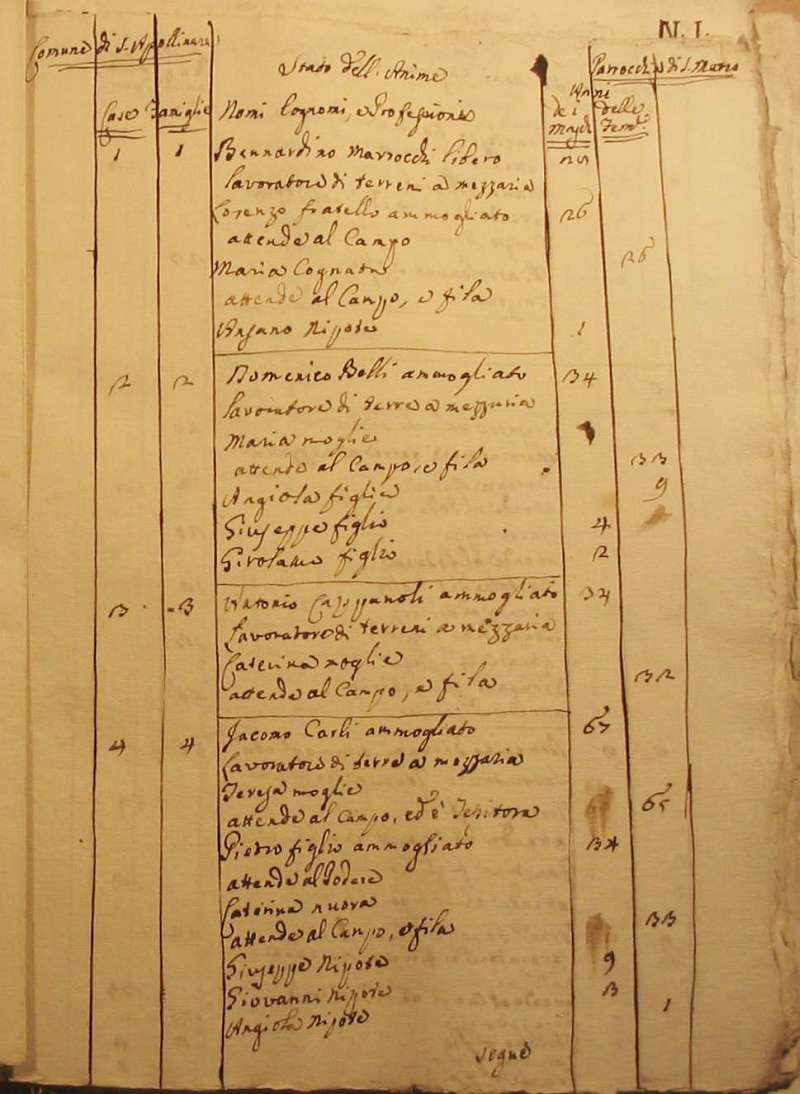 N. 1.
Comune di S. Apollinare
Stato dell'Anime
Parrocchia di S. Marco
Case Famiglie Nomi Cognomi, e Professione Anni dei Maschi delle Fem.e
1 1 Bernardino Marrocchi libero 25
lavoratore di terreni a mezzaria
Lorenzo fratello ammogliato 26
attende al Campo
Maria Cognata 26
attende al Campo, e fila
Ansano Nipote 1
2 2 Domenico Belli ammogliato 34
lavoratore di terre a mezzaria
Maria moglie
attende al Campo, e fila 33
Angiola figlia 9
Giuseppe figlio 4
Girolamo figlio 2
3 3 Antonio Cappanoli ammogliato 34
Lavoratore di terreni a mezzaria
Caterina moglie
attende al Campo, e fila 32
4 4 Jacomo Carli ammogliato 65
Lavoratore di terre a mezzaria
Teresa moglie 65
attende al Campo, ed è Tessitora
Pietro figlio ammogliato 34
attende al Podere
Caterina nuora
attende al Campo, e fila 33
Giuseppe Nipote 9
Giovanni Nipote 3
Angiola Nipote 1
segue